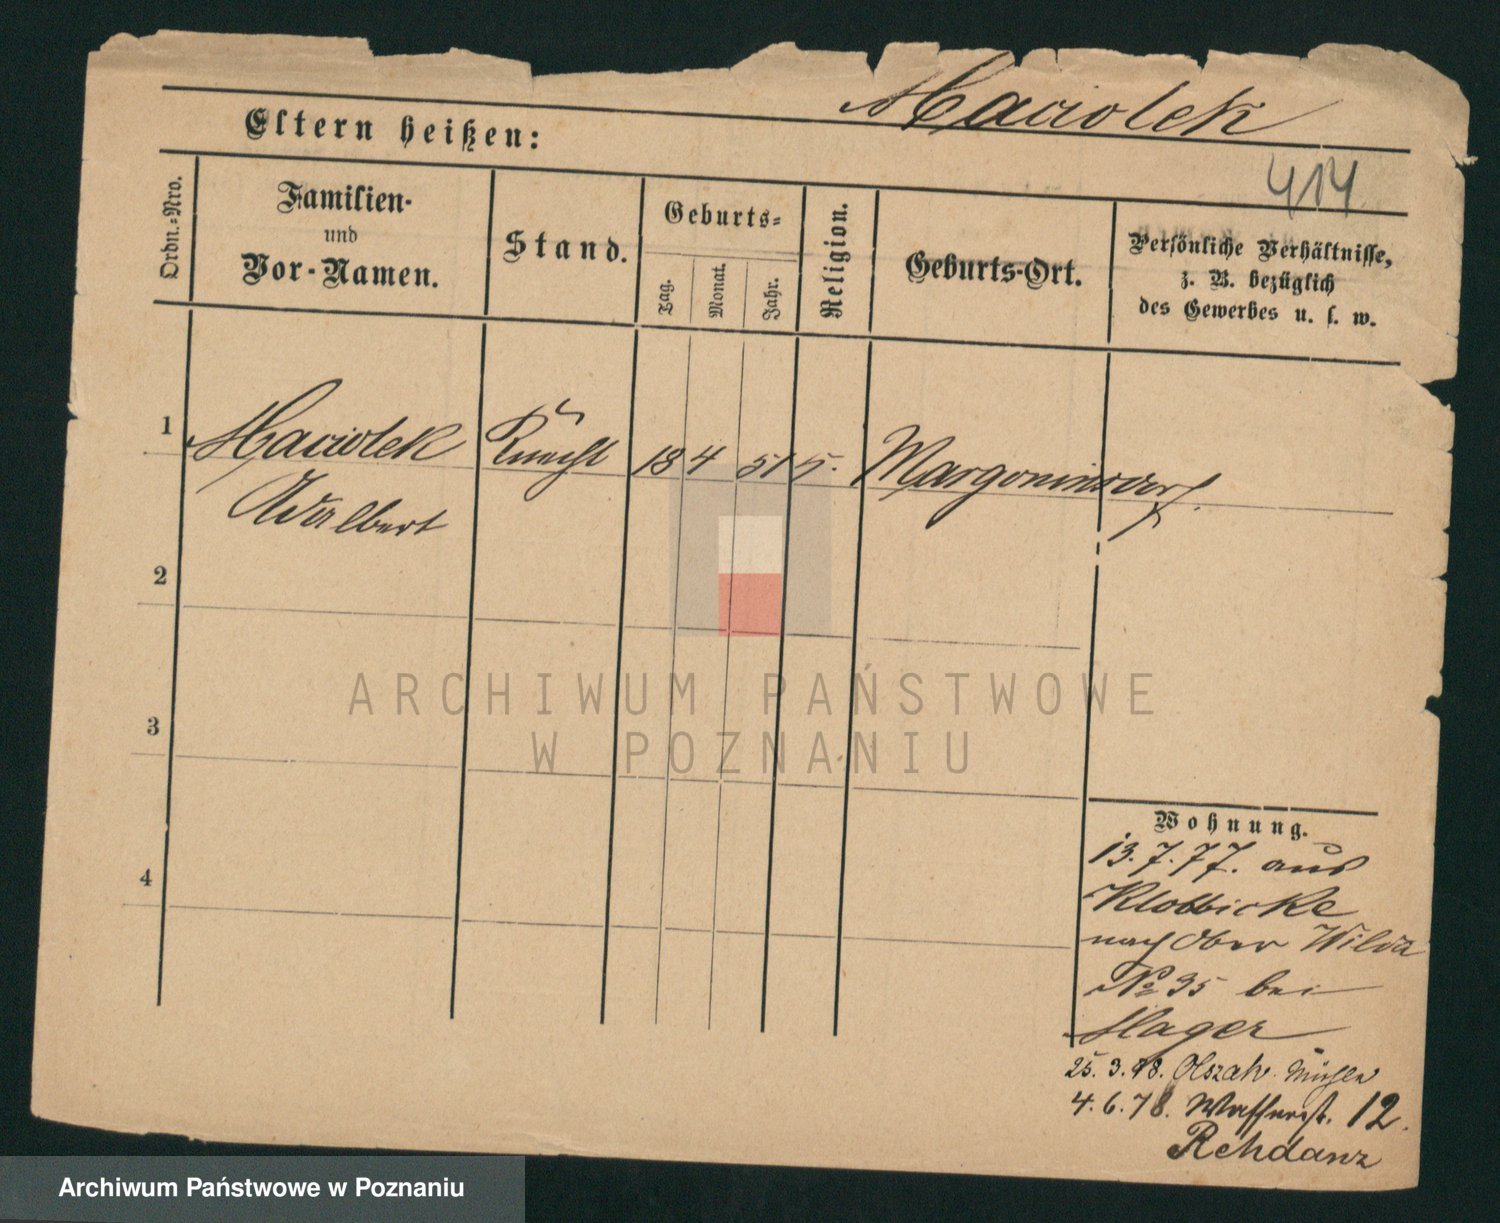 Maciolek
Eltern heißen:
414
Ordn.-Nro.
Familien-
und
Vor-Namen.
Stand.
Geburts-
Tag.
Monat.
Jahr.
Religion.
Geburts-Ort.
Persönliche Verhältnisse,
z. B. bezüglich
des Gewerbes u. s. w.
1
Maciolek Knecht 18 4 51 Margoninsdorf.
Adalbert
2
3
4
ARCHIWUM PAŃSTWOWE
W POZNANIU
Wohnung.
13.7.77. aus
Klobbicke
nach Ober Wilda
No 35 bei
Hager
25. 3. 78. Olszak Mühle
4. 6. 78. Wasserstr. 12.
Rehdanz
Archiwum Państwowe w Poznaniu